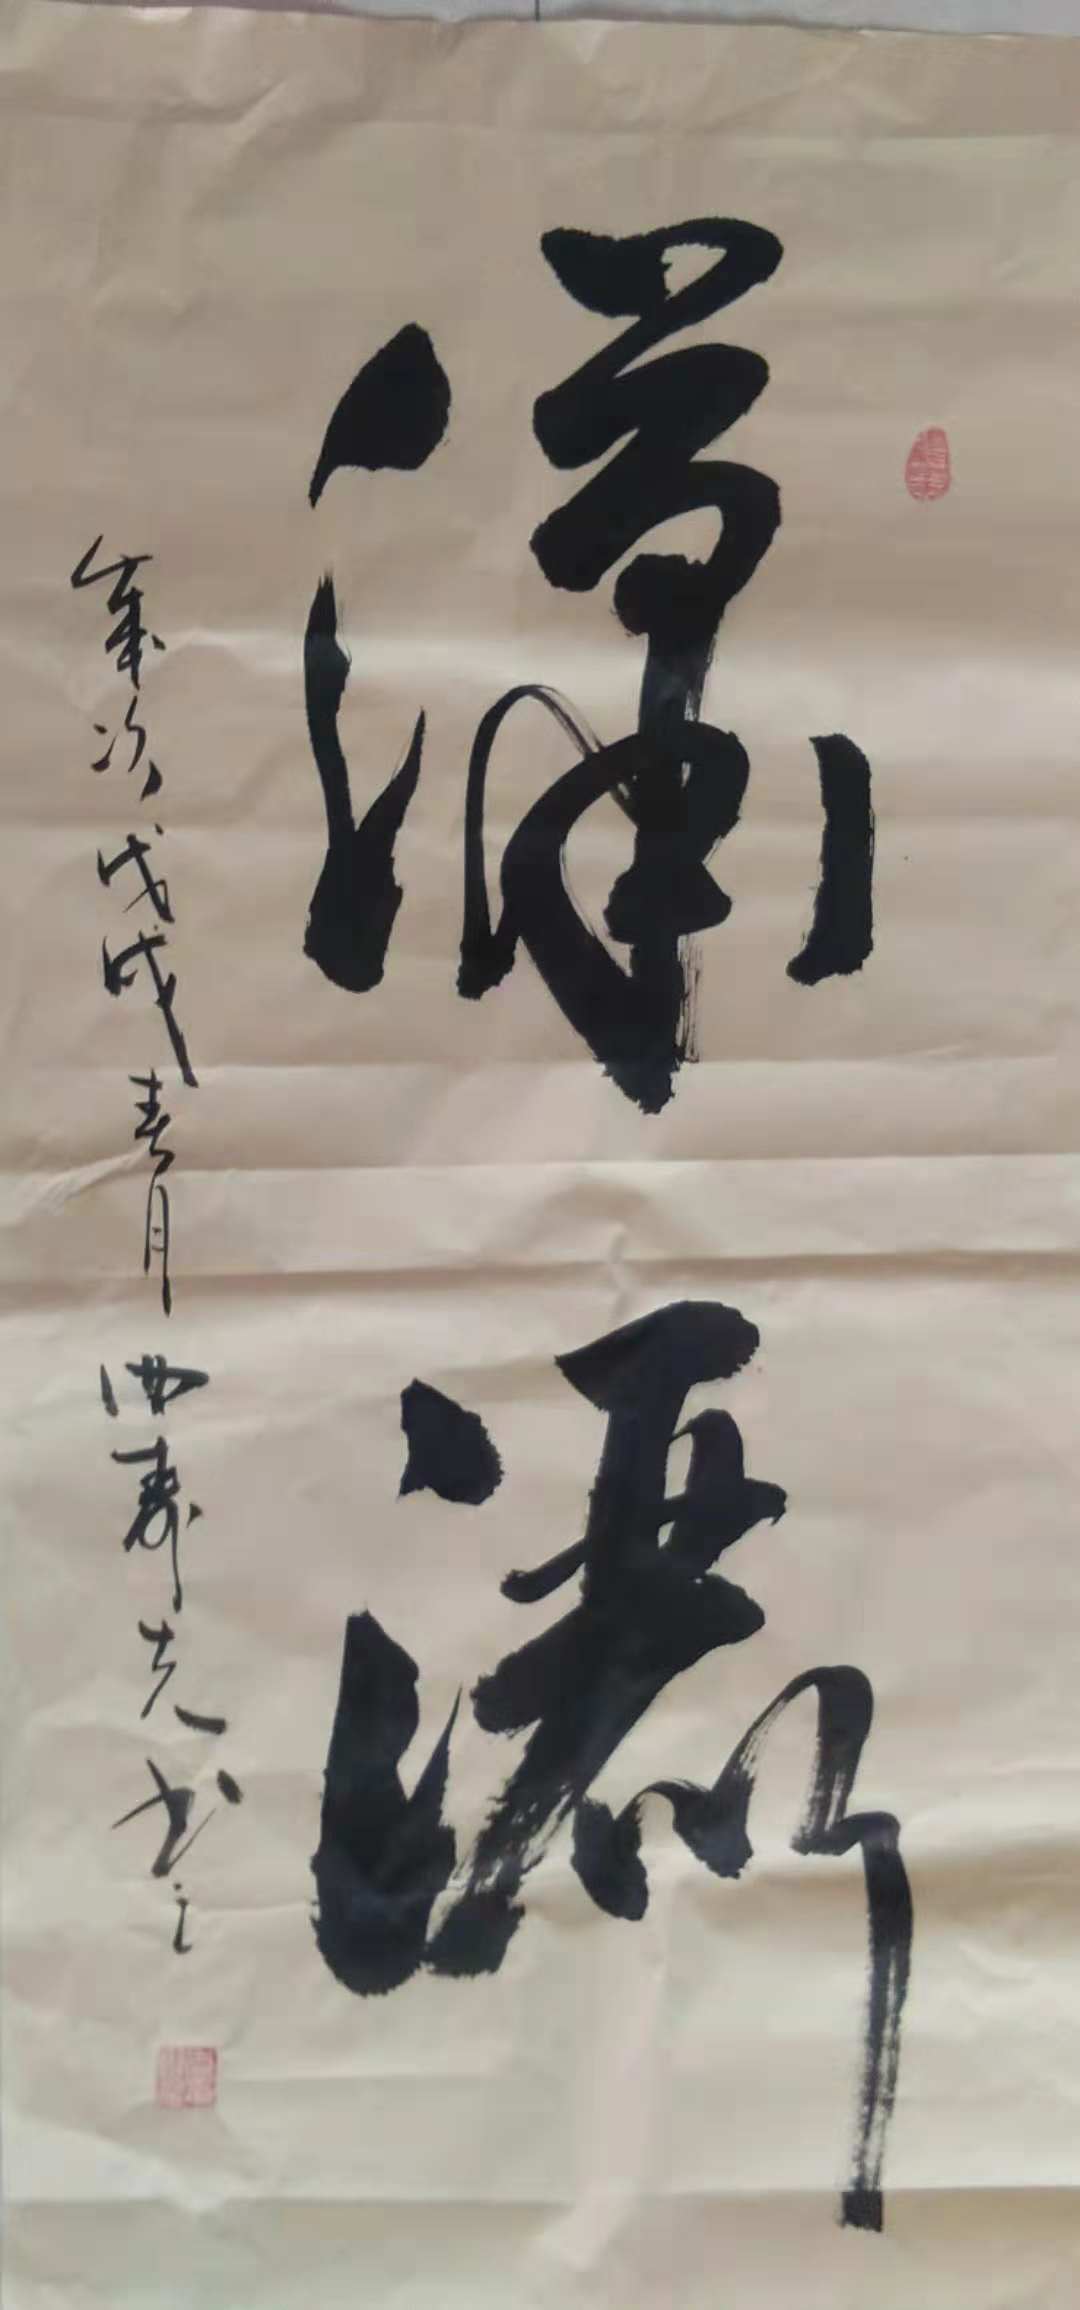 潇洒
岁次戊戌春月曲寿先书之